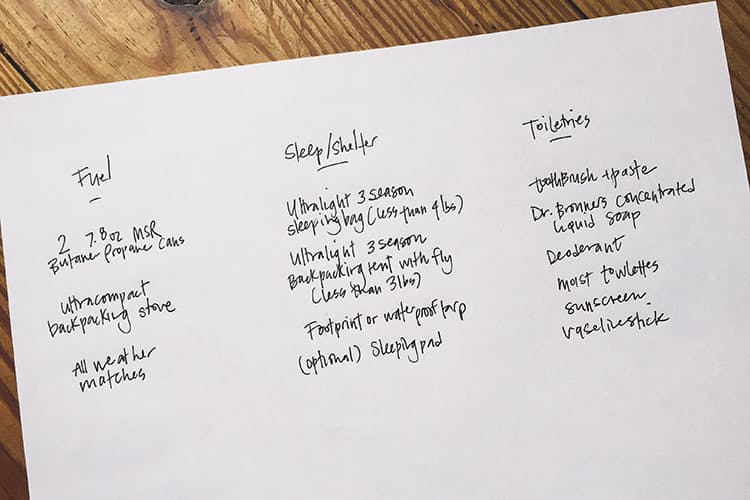 Fuel
2 7.8oz MSR
Butane Propane Cans
ultracompact
backpacking stove
All weather
matches
Sleep/Shelter
Ultralight 3 season
sleeping bag (less than 4lbs)
Ultralight 3 season
Backpacking tent with fly
(less than 3lbs)
Footprint or waterproof tarp
(optional) Sleeping pad
Toiletries
toothBrush + paste
Dr. Bronners concentrated
liquid soap
Deoderant
moist towlettes
sunscreen
vaseline stick